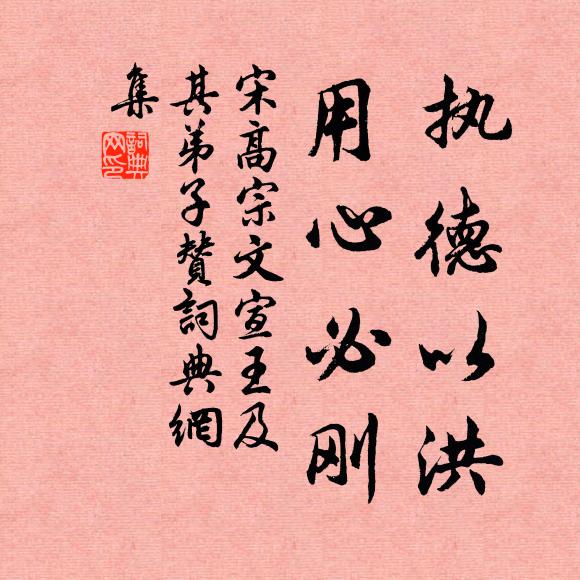 执德以洪
用心必刚
宋高宗文宣王及
其弟子赞詞典網
集
詞典
网印